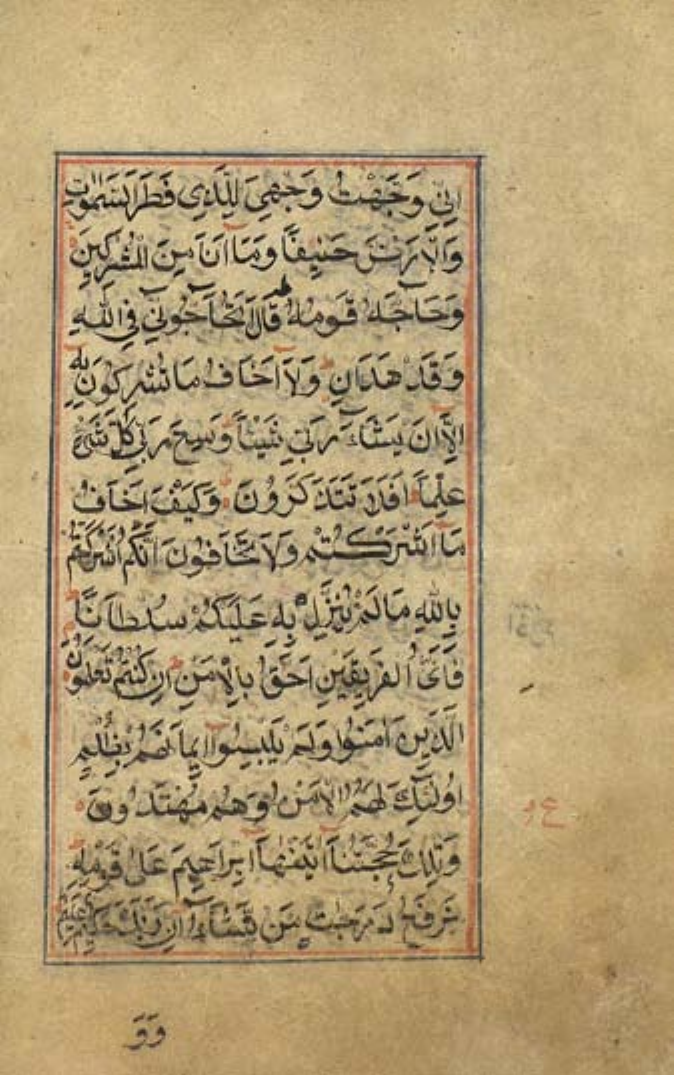 اِنِّي وَجَّهْتُ وَجْهِيَ لِلَّذِي فَطَرَ السَّمٰوَاتِ
وَالْاَرْضَ حَنِيفًا وَمَا اَنَا مِنَ الْمُشْرِكِينَ
وَحَاجَّهُ قَوْمُهُ قَالَ اَتُحَاجُّونِّي فِي اللهِ
وَقَدْ هَدَانِ وَلَا اَخَافُ مَا تُشْرِكُونَ بِهِ
اِلَّا اَنْ يَشَاءَ رَبِّي شَيْئًا وَسِعَ رَبِّي كُلَّ شَيْءٍ
عِلْمًا اَفَلَا تَتَذَكَّرُونَ وَكَيْفَ اَخَافُ
مَا اَشْرَكْتُمْ وَلَا تَخَافُونَ اَنَّكُمْ اَشْرَكْتُمْ
بِاللهِ مَا لَمْ يُنَزِّلْ بِهِ عَلَيْكُمْ سُلْطَانًا
فَاَيُّ الْفَرِيقَيْنِ اَحَقُّ بِالْاَمْنِ اِنْ كُنْتُمْ تَعْلَمُونَ
الَّذِينَ اٰمَنُوا وَلَمْ يَلْبِسُوا اِيمَانَهُمْ بِظُلْمٍ
اُولٰئِكَ لَهُمُ الْاَمْنُ وَهُمْ مُهْتَدُونَ
وَتِلْكَ حُجَّتُنَا اٰتَيْنٰهَا اِبْرَاهِيمَ عَلٰى قَوْمِهِ
نَرْفَعُ دَرَجَاتٍ مَنْ نَشَاءُ اِنَّ رَبَّكَ حَكِيمٌ عَلِيمٌ
ع
وَوَ